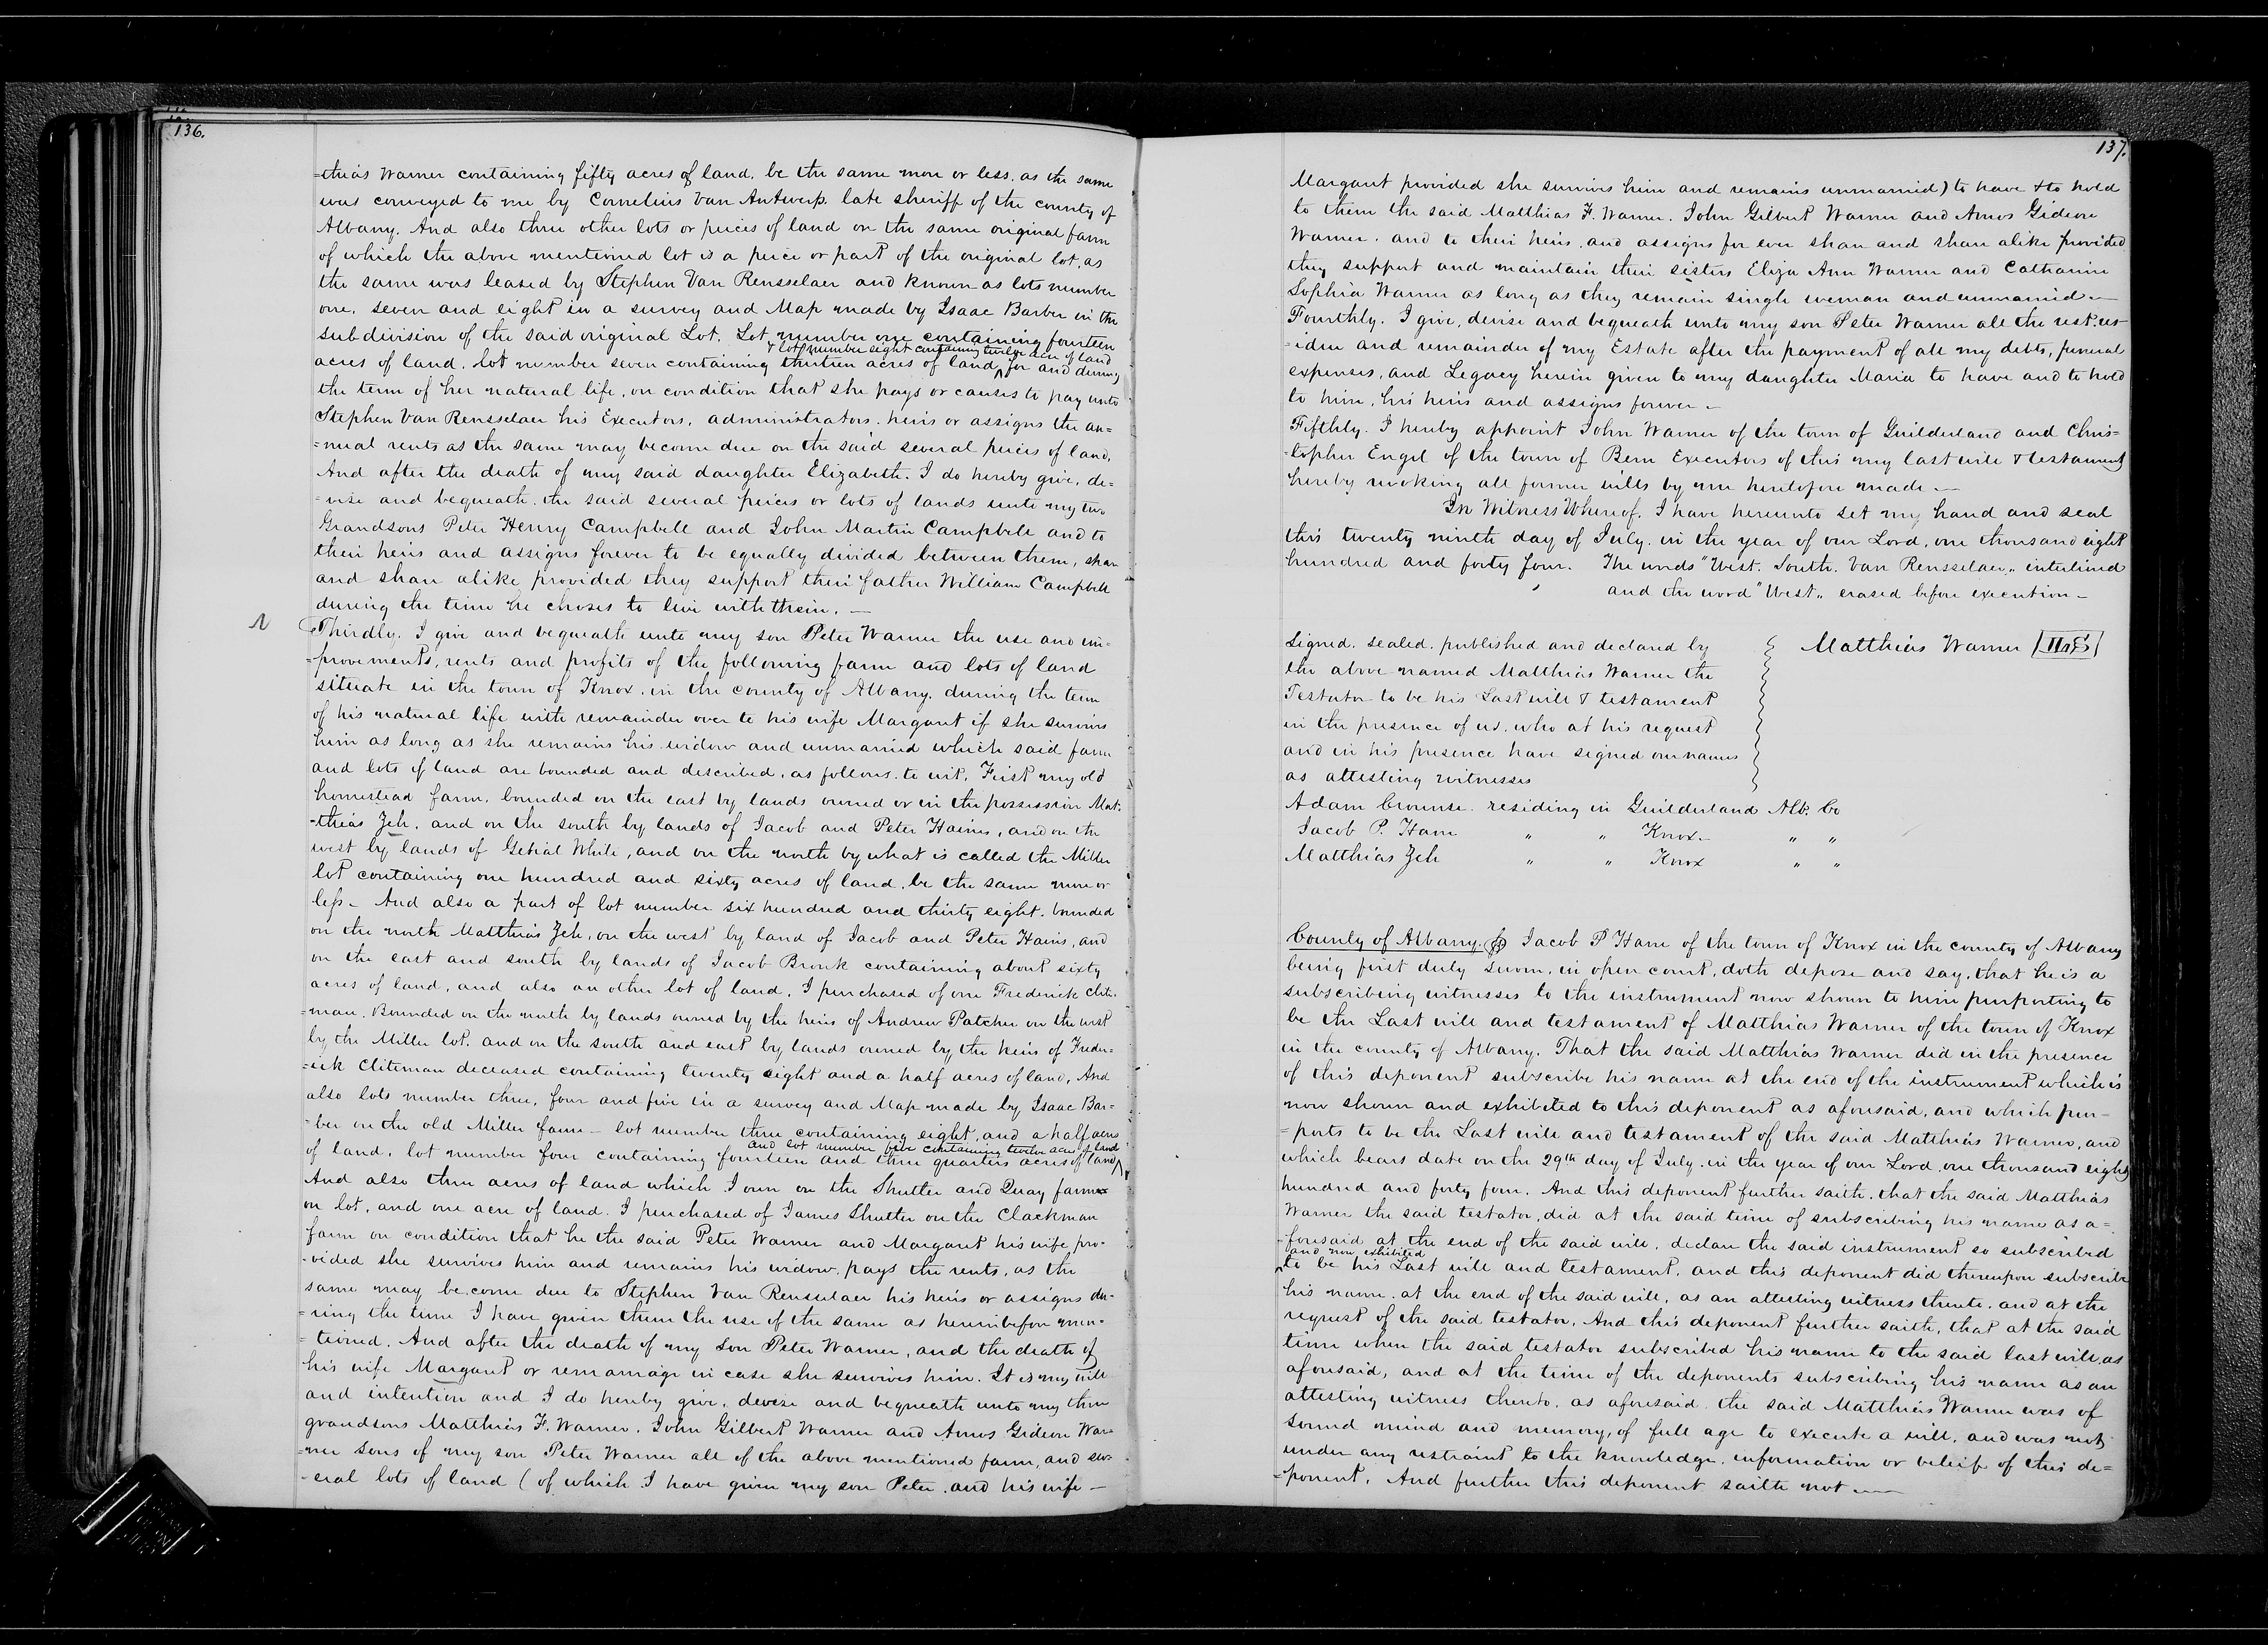 136.
=thias Warner containing fifty acres of land, be the same more or less, as the same
was conveyed to me by Cornelius Van Antwerp, late sheriff of the county of
Albany. And also three other lots or peices of land on the same original farm
of which the above mentioned lot is a peice or part of the original lot, as
the same was leased by Stephen Van Rensselaer and known as lots number
one, seven and eight in a survey and Map made by Isaac Barber in the
subdivision of the said original Lot. Lot number one containing fourteen
& lot number eight containing twelve acres of land
acres of land, lot number seven containing thirteen acres of land ^ for and during
the term of her natural life, on condition that she pays or causes to pay unto
Stephen Van Rensselaer his Executors, administrators, heirs or assigns the an=
=nual rents as the same may become due on the said several peices of land,
And after the death of my said daughter Elizabeth. I do hereby give, de=
=vise and bequeath, the said several peices or lots of lands unto my two
Grandsons Peter Henry Campbell and John Martin Campbell and to
their heirs and assigns forever to be equally divided between them, share
and share alike provided they support their father William Campbell
during the time he choses to live with them. —
Thirdly. I give and bequeath unto my son Peter Warner the use and im=
=provements, rents and profits of the following farm and lots of land
situate in the town of Knox, in the county of Albany, during the term
of his natural life with remainder over to his wife Margaret if she survives
him as long as she remains his widow and unmarried which said farm
and lots of land are bounded and described, as follows, to wit, First my old
homestead farm, bounded on the east by lands owned or in the possession Mat-
-thias Zeh, and on the south by lands of Jacob and Peter Haines, and on the
west by lands of Gehial White, and on the north by what is called the Miller
lot containing one hundred and sixty acres of land, be the same more or
less – And also a part of lot number six hundred and thirty eight, bounded
on the north Matthias Zeh, on the west by land of Jacob and Peter Hains, and
on the east and south by lands of Jacob Bronk containing about sixty
acres of land, and also an other lot of land, I purchased of one Frederick Clite-
=man, Bounded on the north by lands owned by the heirs of Andrew Patcher on the west
by the Miller lot, and on the south and east by lands owned by the heirs of Freder=
=ick Cliteman deceased containing twenty eight and a half acres of land, And
also lots number three, four and five in a survey and Map made by Isaac Bar=
=ber on the old Miller farm – lot number three containing eight, and a half acres
and lot number five containing twelve acres of land
of land, lot number four containing fourteen and three quarters acres of land ^
And also three acres of land which I own on the Shutter and Quay farm
on lot, and one acre of land. I purchased of James Shutter on the Clackman
farm on condition that he the said Peter Warner and Margaret his wife, pro-
-vided she survives him and remains his widow, pays the rents, as the
same may be come due to Stephen Van Rensselaer his heirs or assigns du-
=ring the time I have given them the use of the same as hereinbefore men-
=tioned. And after the death of my son Peter Warner, and the death of
his wife Margaret or remarriage in case she survives him. It is my will
and intention and I do hereby give, devise and bequeath unto my three
grandsons Matthias F. Warner, John Gilbert Warner and Amos Gideon War=
=ner sons of my son Peter Warner all of the above mentioned farm, and sev-
-eral lots of land (of which I have given my son Peter, and his wife –
137.
Margaret provided she survives him and remains unmarried) to have & to hold
to them the said Matthias F. Warner, John Gilbert Warner and Amos Gideon
Warner, and to their heirs, and assigns for ever share and share alike provided
they support and maintain their sisters Eliza Ann Warner and Catharine
Sophia Warner as long as they remain single woman and unmarried –
Fourthly. I give, devise and bequeath unto my son Peter Warner all the rest, res-
=idue and remainder of my Estate after the payment of all my debts, funeral
expenses, and Legacy herein given to my daughter Maria to have and to hold
to him, his heirs and assigns forever –
Fifthly. I hereby appoint John Warner of the town of Guilderland and Chris=
=topher Engel of the town of Bern Executors of this my last will & testament
hereby revoking all former wills by me heretofore made –
In Witness Whereof. I have hereunto set my hand and seal
this twenty ninth day of July, in the year of our Lord, one thousand eight
hundred and forty four. The words "West. South. Van Rensselaer„ interlined
and the word "West„ erased before execution –
Signed, sealed, published and declared by
the above named Matthias Warner the
Testator to be his Last will & testament
in the presence of us, who at his request
and in his presence have signed our names
as attesting witnesses
Matthias Warner
Adam Crounse residing in Guilderland Alb. Co
Jacob P. Hane „ „ Knox – „ „
Matthias Zeh „ „ Knox „ „
County of Albany. Jacob P Hane of the town of Knox in the county of Albany
being first duly sworn, in open court, doth depose and say, that he is a
subscribing witnesses to the instrument now shown to him purporting to
be the Last will and testament of Matthias Warner of the town of Knox
in the county of Albany. That the said Matthias Warner did in the presence
of this deponent subscribe his name at the end of the instrument which is
now shown and exhibited to this deponent as aforesaid, and which pur-
=ports to be the Last will and testament of the said Matthias Warner, and
which bears date on the 29th day of July, in the year of our Lord, one thousand eight
hundred and forty four. And this deponent further saith, that the said Matthias
Warner the said testator, did at the said time of subscribing his name as a=
-foresaid at the end of the said will, declare the said instrument so subscribed
and now exhibited
^ to be his Last will and testament, and this deponent did thereupon subscribe
his name, at the end of the said will, as an attesting witness thereto, and at the
request of the said testator. And this deponent further saith, that at the said
time when the said testator subscribed his name to the said last will, as
aforesaid, and at the time of the deponents subscribing his name as an
attesting witness thereto, as aforesaid, the said Matthias Warner was of
sound mind and memory, of full age to execute a will, and was not
under any restraint to the knowledge, information or beleif of this de=
=ponent. And further this deponent saith not –